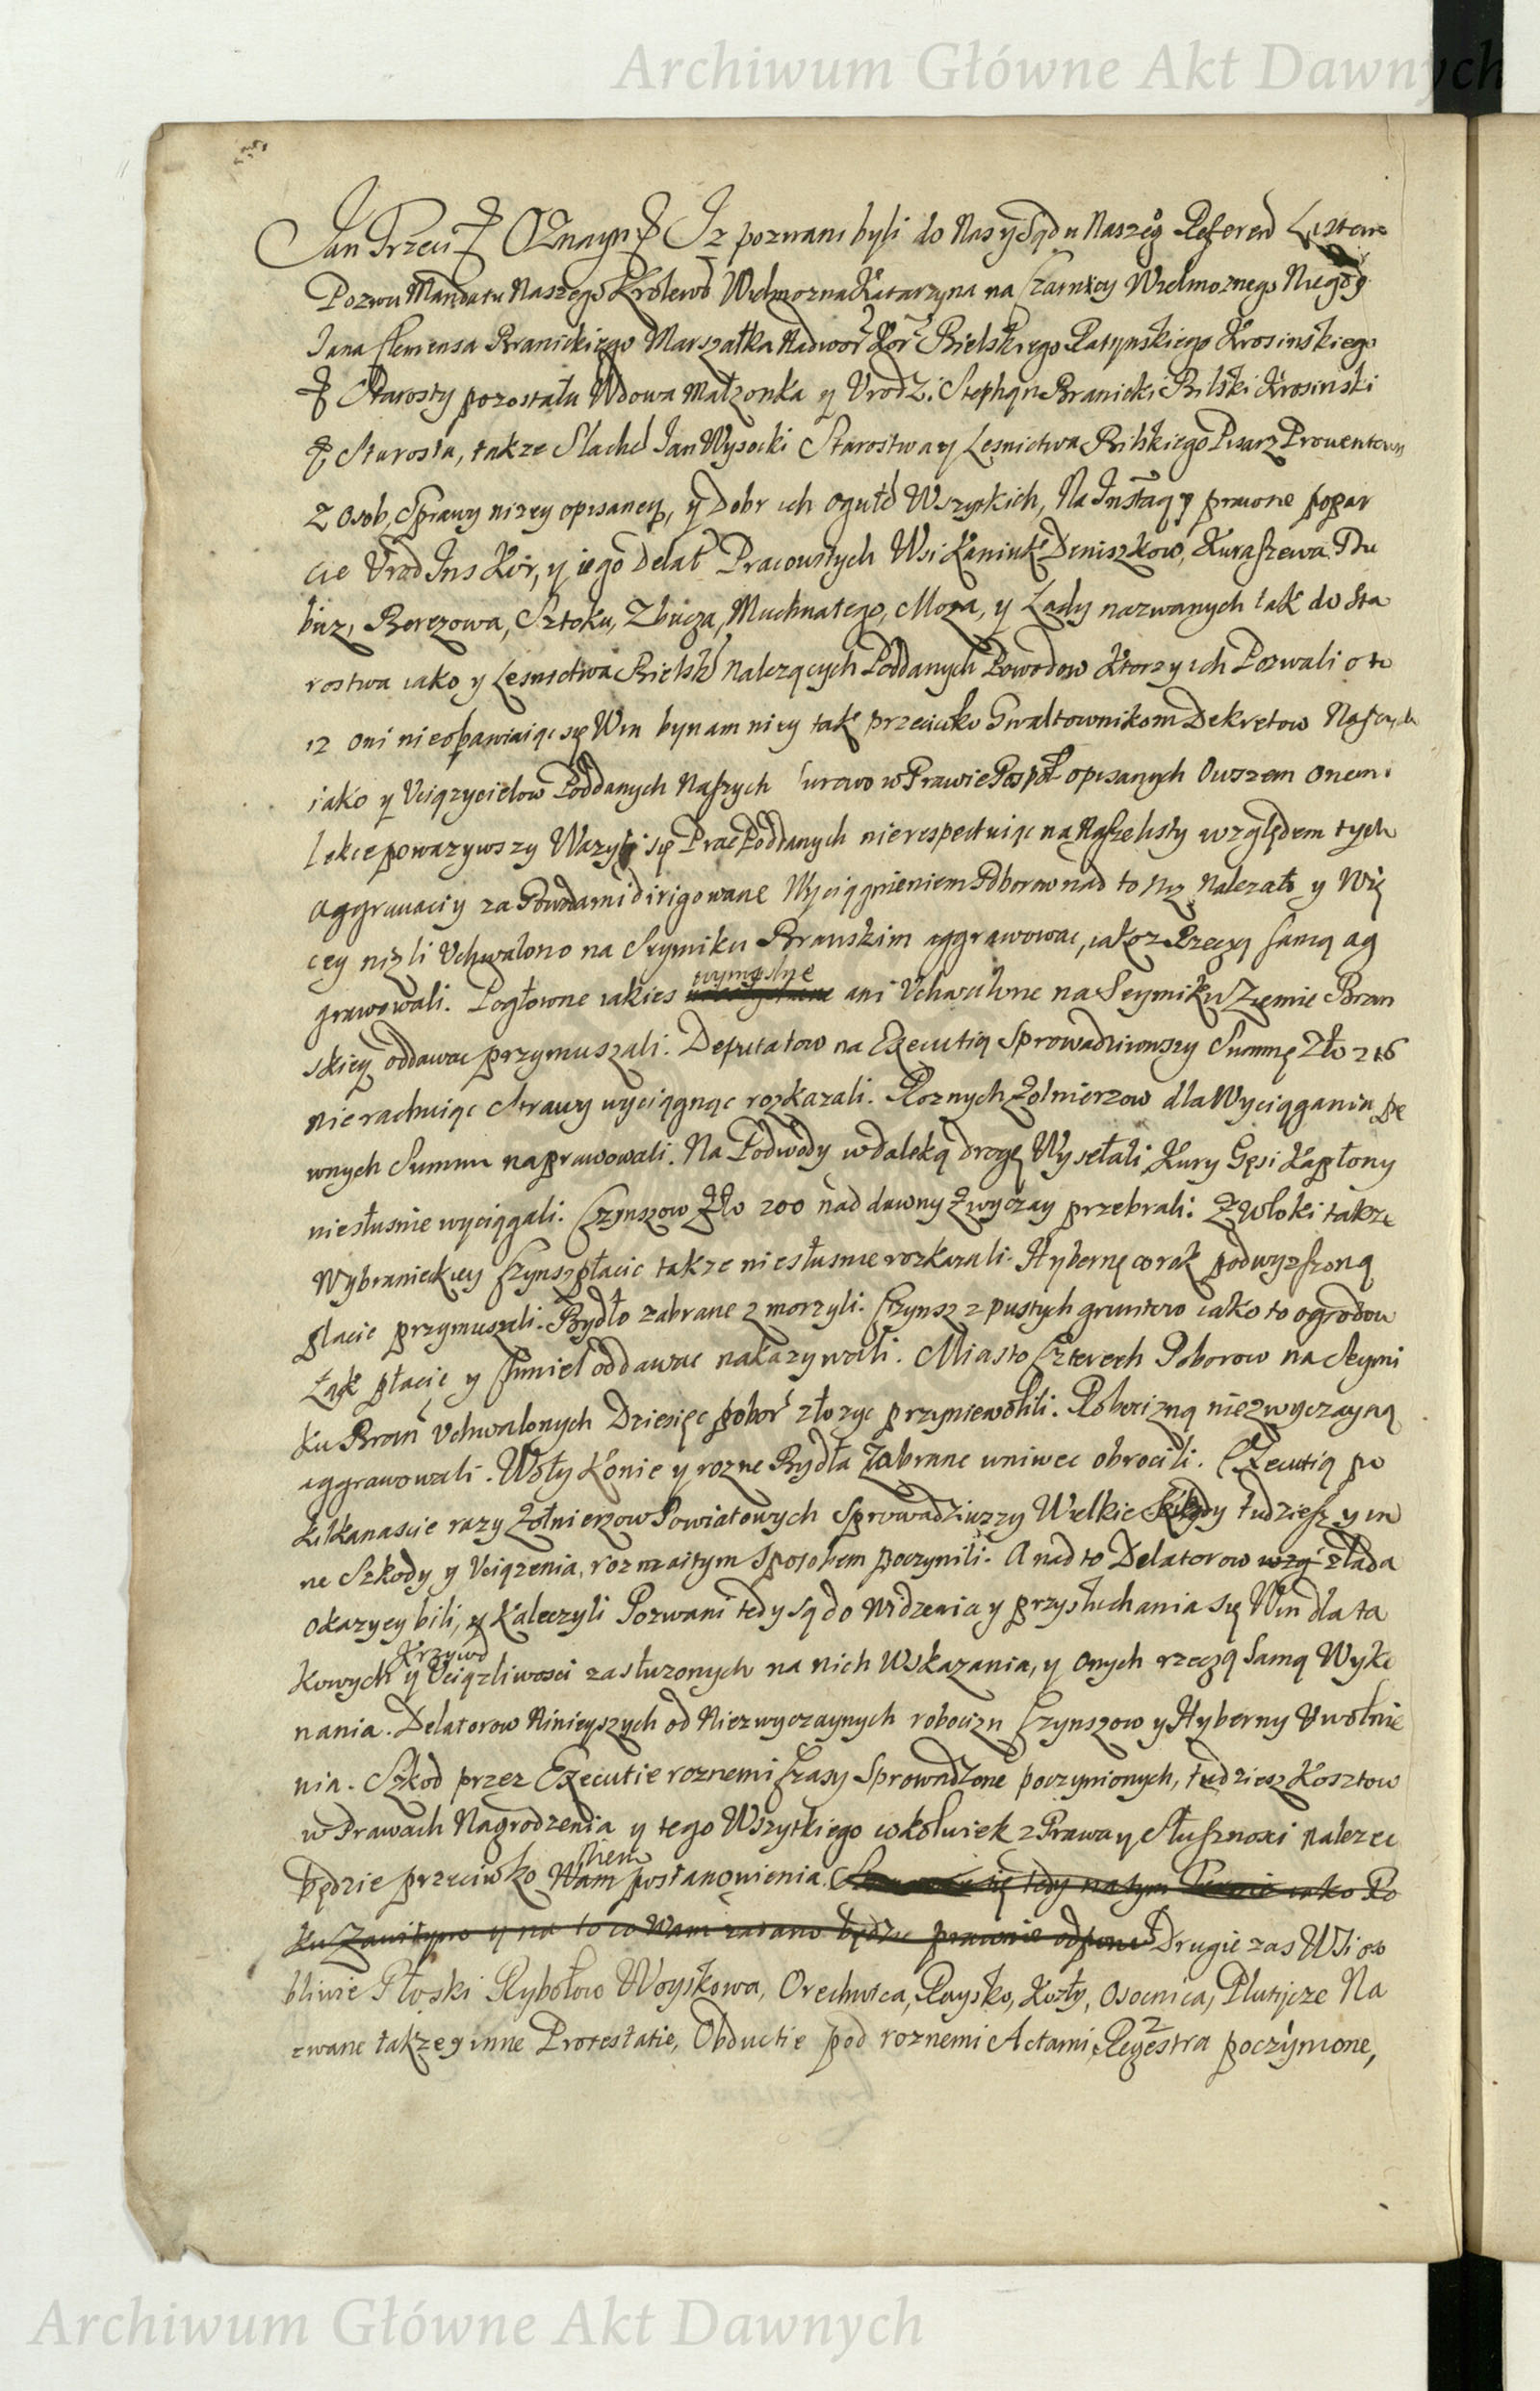 Archiwum Główne Akt Dawnych
Jan Trzeci Oznaym Iz pozwani byli do Nas y Sądu Naszego Referend Listem
Pozwu Mandatu Naszego Krolewo Wielmozna Katarzyna na Czarncy Wielmoznego Niegdy
Jana Clemensa Branickiego Marszałka Nadwor Kor Bielskiego Ratynskiego Krosinskiego
Starosty pozostała Wdowa Małzonka y Urodz. Stephan Branicki Bilski Krosinski
Starosta, takze Slachet Jan Wysocki Starostwa y Lesnictwa Bilskiego Pisarz Prouentowy
z Osob, Sprawy nizey opisaney, y Dobr ich ogułe Wszytkich, Na Instaq y prawne popar
cie Urod Ins Kor, y iego Delat Pracowitych Wsi Kaniuk Deniskow, Kuraszewa Du
bicz, Berezowa, Sztoku, Zbucza, Muchnatego, Mora, y Lady nazwanych tak do Sta
rostwa iako y Lesnictwa Bielsk nalezących Poddanych Powodow Ktorzy ich Pozwali o to
iz oni nieobawiaiąc się Win bynamniey tak przeciwko Gwałtownikom Dekretow Naszych
iako y Uciązycielow Poddanych Naszych surowo w Prawie Pospol opisanych Owszem onemi
lekce powazywszy Wazyli się Prac Poddanych nierespectuiąc na Nasze listy względem tych
aggrauaciy za Powodami dirigowane Wyciągnieniem Poborow nad to niz nalezało y Wię
cey nizli Uchwalono na Seymiku Branskim aggrawowac, iakoz Rzeczą samą ag
grawowali. Pogłowne iakies wymyslne ani Uchwalone na Seymiku Ziemie Bran
skiey oddawac przymuszali. Deputatow na Executią Sprowadziwszy Summę Zło 216
nie rachuiąc Strawy wyciągnąc rozkazali. Roznych Zolnierzow dla Wyciągania pe
wnych Summ naprawowali. Na Podwody w daleką drogę Wysełali Kury Gęsi Kapłony
niesłusnie wyciągali. Czynszow Zło 200 nad dawny Zwyczay przebrali. Z Włoki takze
Wybranieckiey Czynsz płacic takze niesłusnie rozkazali. Hybernę co rok podwyzszoną
płacic przymuszali. Bydło zabrane zmorzyli. Czynsz z pustych gruntow iako to ogrodow
Łąk płacic y Chmiel oddawac nakazywali. Miasto Czterech Poborow na Seymi
ku Bran Uchwalonych Dziesięc pobor złozyc przyniewolili. Robocizną niezwyczayną
aggrawowali. Woły Konie y rozne Bydła Zabrane wniwec obrocili. Executią po
kilkanascie razy Zołnierzow Powiatowych Sprowadziwszy Wielkie Szkody tudziesz y in
ne Szkody y Uciązenia, rozmaitym Sposobem poczynili. A nad to Delatorow wzg zlada
okazyey bili, y Kaleczyli Pozwani tedy są do Widzenia y przysłuchania się Win dla ta
kowych Krzywd y Uciązliwosci zasłuzonych na nich Wskazania, y onych rzeczą Samą Wyko
nania. Delatorow Ninieyszych od Niezwyczaynych robocizn Czynszow y Hyberny Uwolnie
nia. Szkod przez Executie roznemi Czasy Sprowadzone poczynionych, tudziesz Kosztow
w Prawach Nagrodzenia y tego Wszytkiego cokolwiek z Prawa y Słusznosci nalezec
będzie przeciwko Wam postanowienia. się tedy na tym Terminie iako Ro
ku Zawitym y na to co Wam zadano będzie prawnie odpow Drugie zas Wsi oso
bliwie Płoski Rybołow Woyskowa, Orechwica, Raysko, Kozły, Osocnica, Plutycze Na
zwane takze y inne Protestatie, Obductie pod roznemi Actami, Regestra poczynione,
Archiwum Główne Akt Dawnych